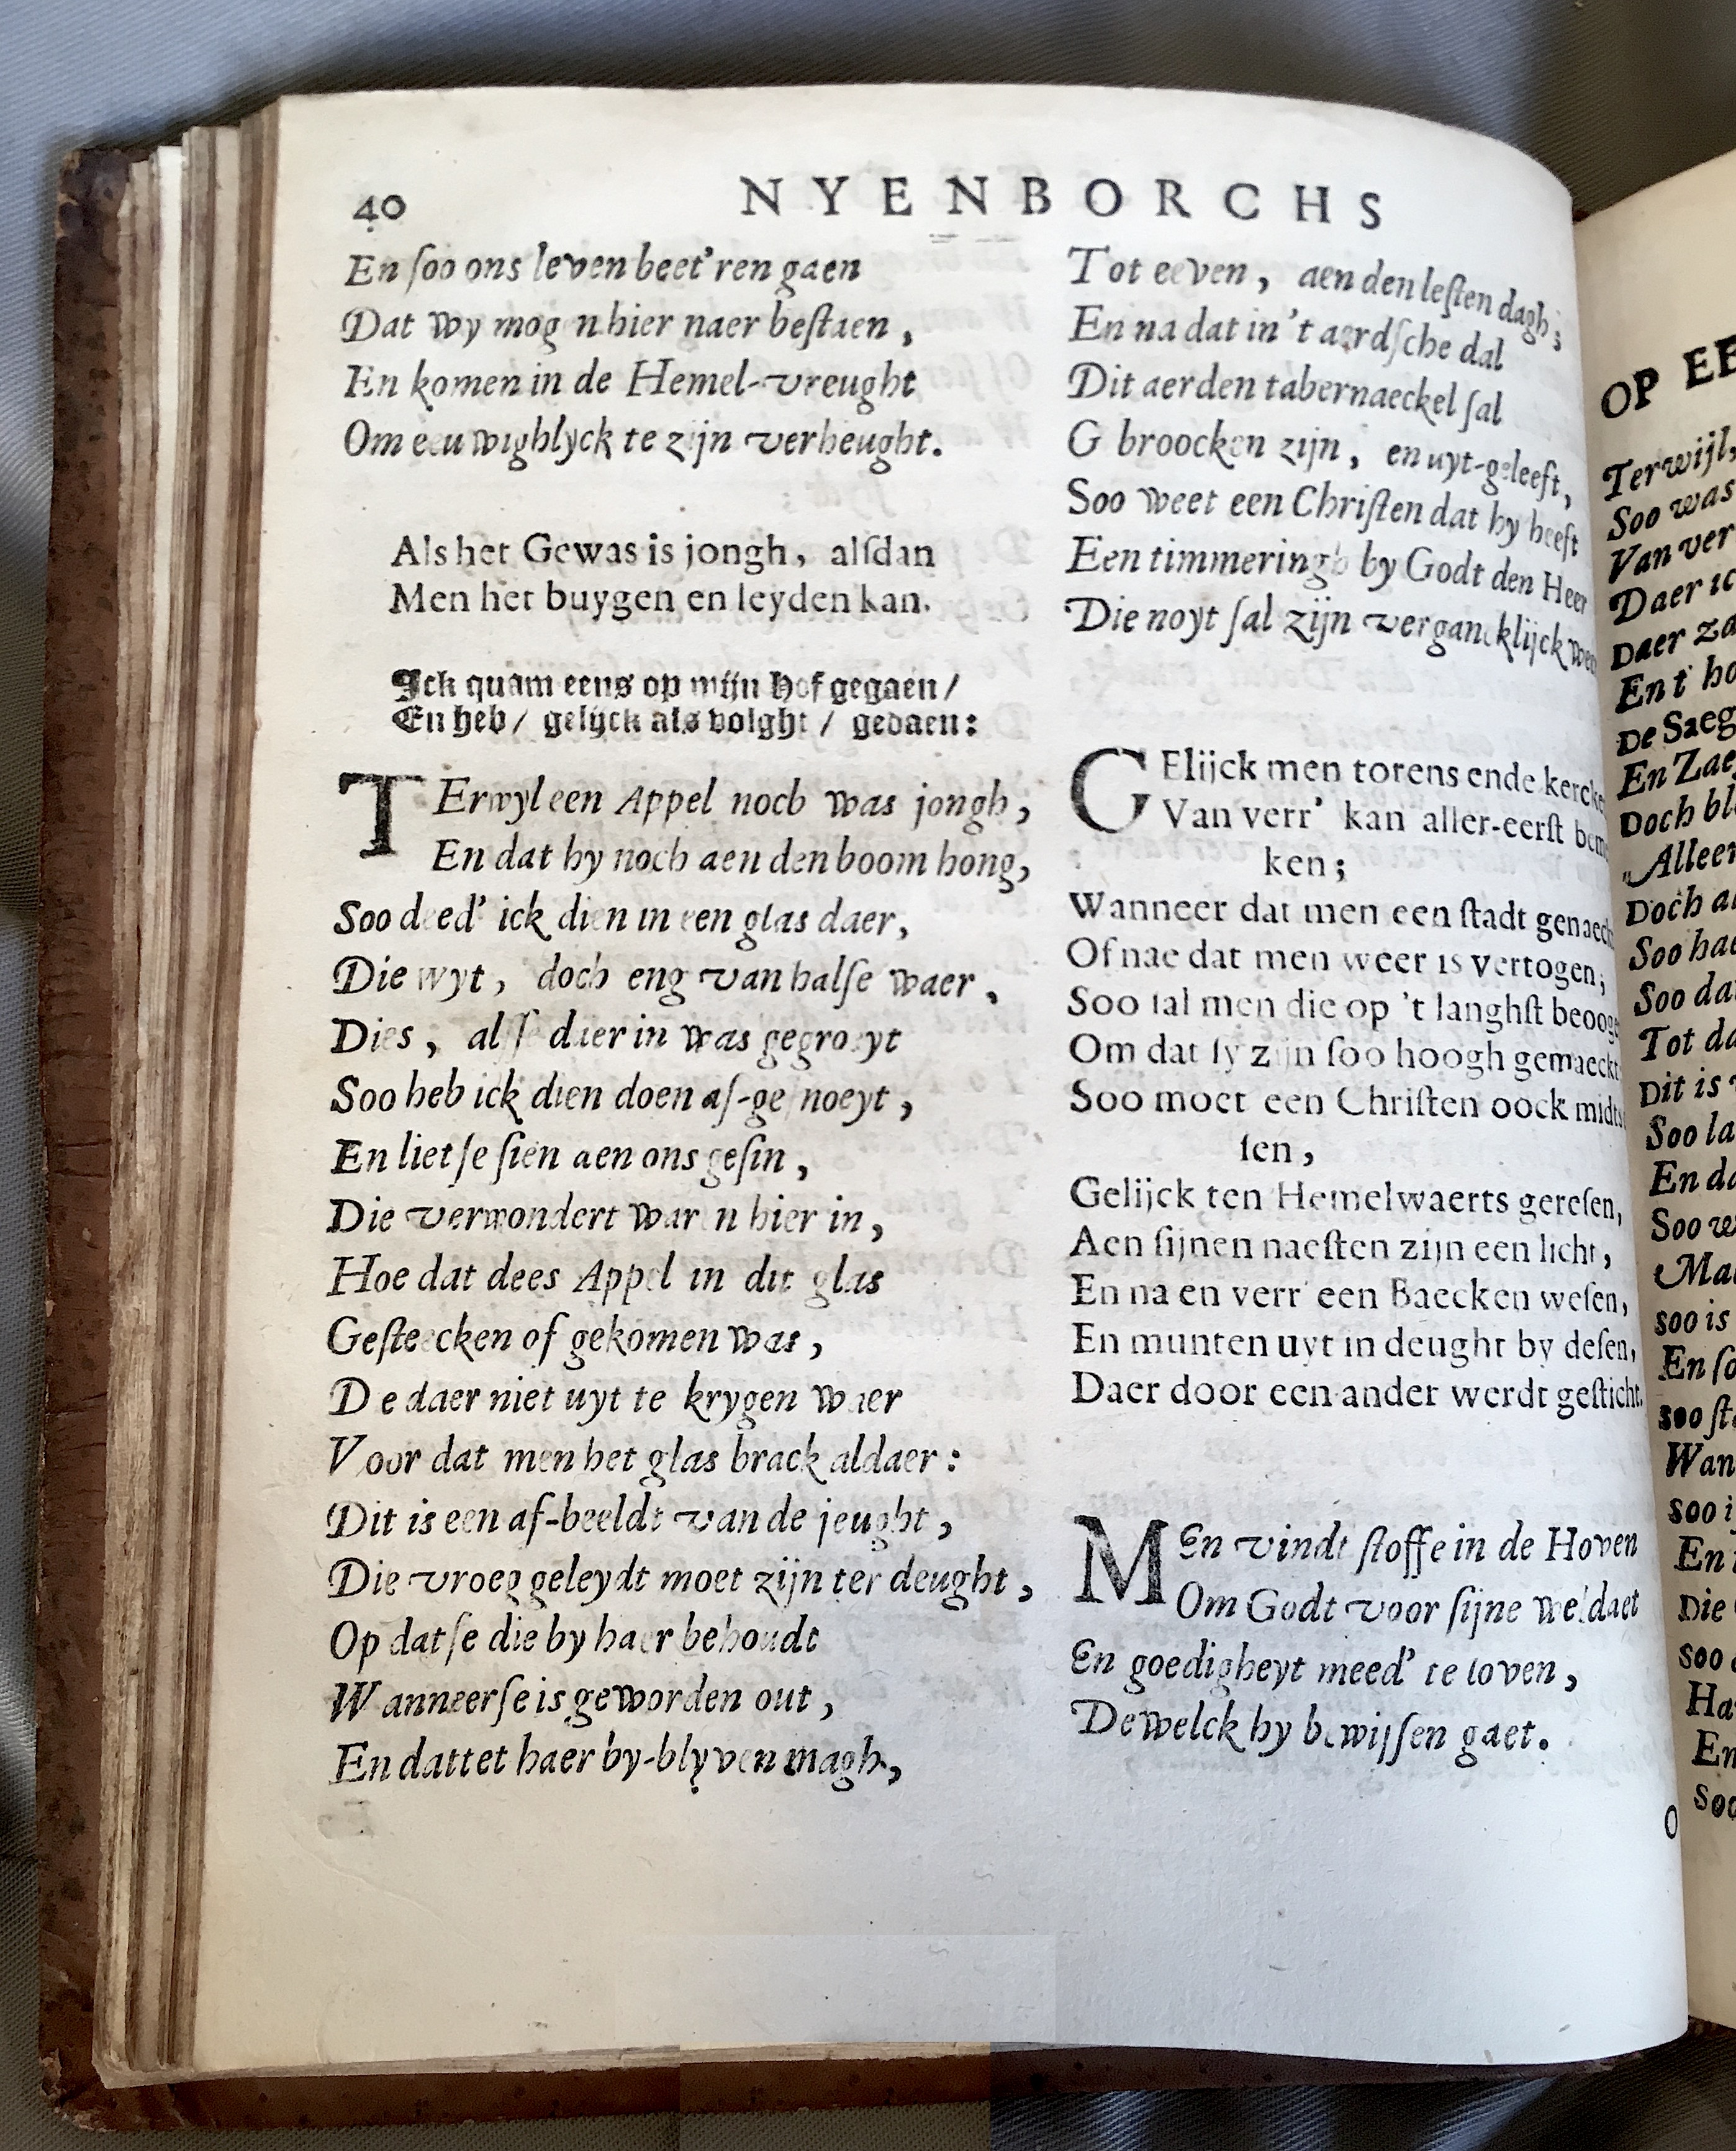 40
NYENBORCHS
En ſoo ons leven beet'ren gaen
Dat wy mog n hier naer beſtaen,
En komen in de Hemel-vreught
Om eeuwighlyck te zijn verheught.
Als het Gewas is jongh, alſdan
Men het buygen en leyden kan.
Ick quam eens op mijn Hof gegaen/
En heb/ gelijck als volght/ gedaen:
TErwyl een Appel noch was jongh,
En dat hy noch aen den boom hong,
Soo deed' ick dien in een glas daer,
Die wyt, doch eng van halſe waer,
Dies, alſſ' daer in was gegroeyt
Soo heb ick dien doen aſ-ge noeyt,
En liet ſe ſien aen ons geſin,
Die verwondert war n hier in,
Hoe dat dees Appel in dit glas
Geſteecken of gekomen was,
D e daer niet uyt te krygen waer
Voor dat men het glas brack aldaer:
Dit is een af-beeldt van de jeught,
Die vroeg geleydt moet zijn ter deught,
Op datſe die by haer behoudt
Wanneerſe is geworden out,
En dattet haer by-blyven magh,
Tot eeven, aen den leſten dagh;
En na dat in 't aerdſche dal
Dit aerden tabernaeckel ſal
G broocken zijn, en uyt-geleeft,
Soo weet een Chriſten dat hy heeft
Een timmeringh by Godt den Heer
Die noyt ſal zijn verganclijck
GElijck men torens ende
Van verr' kan aller-eerſt
ken;
Wanneer dat men een ſtadt
Of nae dat men weer is vertogen,
Soo ſal men die op 't langhſt
Om dat ſy zijn ſoo hoogh gemaeckt
Soo moet een Chriſten oock
ſen,
Gelijck ten Hemelwaerts gereſen,
Aen ſijnen naeſten zijn een licht,
En na en verr' een Baecken weſen,
En munten uyt in deught by deſen,
Daer door een ander werdt geſticht.
MEn vindt ſtoffe in de Hoven
Om Godt voor ſijne weldaet
En goedigheyt meed' te loven,
De welck hy bewijſſen gaet.
OP
Terwijl,
Soo was
Van ver
Daer
Daer
En t'
De
En
Doch
Alleen
Doch
Soo
Soo
Tot
Dit is
Soo
En
Soo
soo is
En
soo
soo
En
Die
soo
En